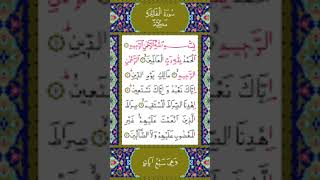 سُورَةُ الْفَاتِحَةِ
مَكِّيَّةٌ
بِسْمِ اللَّهِ الرَّحْمَٰنِ الرَّحِيمِ
الْحَمْدُ لِلَّهِ رَبِّ الْعَالَمِينَ الرَّحْمَٰنِ
الرَّحِيمِ مَالِكِ يَوْمِ الدِّينِ
إِيَّاكَ نَعْبُدُ وَإِيَّاكَ نَسْتَعِينُ
اهْدِنَا الصِّرَاطَ الْمُسْتَقِيمَ صِرَاطَ
الَّذِينَ أَنْعَمْتَ عَلَيْهِمْ غَيْرِ
الْمَغْضُوبِ عَلَيْهِمْ وَلَا الضَّالِّينَ
وَهِيَ سَبْعُ آيَاتٍ